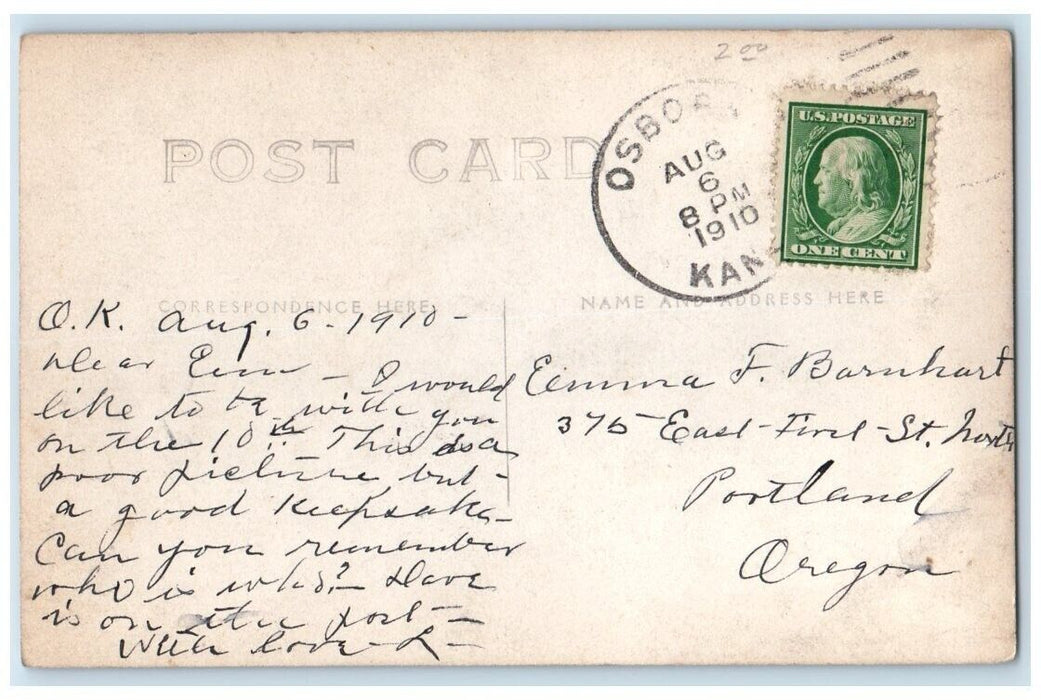 2 00
POST CARD
OSBOR
AUG
6
8 PM
1910
KAN
U.S. POSTAGE
ONE CENT
CORRESPONDENCE HERE
NAME AND ADDRESS HERE
O.K. Aug. 6-1910-
Dear Em - I would
like to be with you
on the 10th. This is a
poor picture but -
a good keepsake -
Can you remember
who is who? - Dave
is on the post -
With love - L -
Emma F. Barnhart
375 East-First-St. North
Portland
Oregon